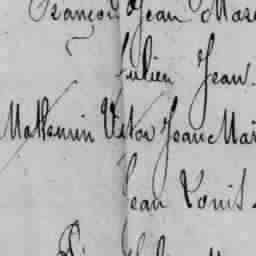 François Jean Mar
Julien Jean
Mathurin Victor Jean Mar
Jean Louis